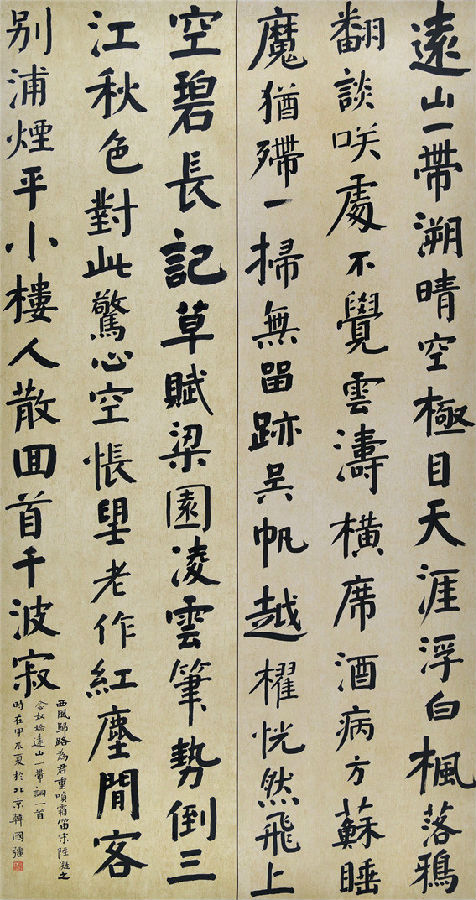 遠山一帶溯晴空極目天涯浮白楓落鴉
翻談咲處不覺雲濤橫席酒病方蘇睡
魔猶殢一掃無留跡吳帆越櫂恍然飛上
空碧長記草賦梁園凌雲筆勢倒三
江秋色對此驚心空悵望老作紅塵閒客
別浦煙平小樓人散回首千波寂
西風歸路為君重噴霜笛宋陸凝之
念奴嬌遠山一帶詞一首
時在甲辰夏於北京韓國強